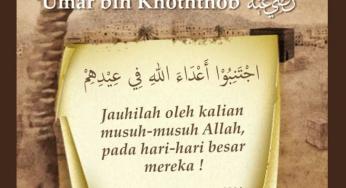 Umar bin Khoththob رضي الله عنه
اجْتَنِبُوْا أَعْدَاءَ اللهِ فِي عِيْدِهِمْ
Jauhilah oleh kalian
musuh-musuh Allah,
pada hari-hari besar
mereka !